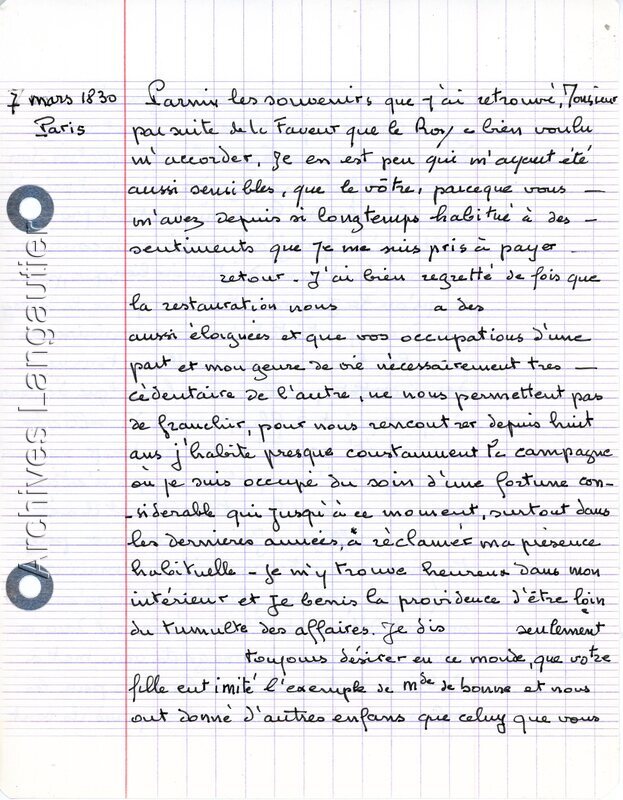 7 mars 1830
Paris
Parmis les souvenirs que j'ai retrouvé, Monsieur
par suite de la Faveur que le Roy a bien voulu
m'accorder, Je en est peu qui m'ayant été
aussi sensibles, que le vôtre, parceque vous —
m'avez depuis si longtemps habitué à des —
sentiments que Je me suis pris à payer -
retour - J'ai bien regretté de fois que
la restauration nous a des
aussi éloignées et que vos occupations d'une
part et mon genre de vie nécessairement tres —
cédentaire de l'autre, ne nous permettent pas
de franchir, pour nous rencontrer depuis huit
ans j'habite presque constamment la campagne
où je suis occupé du soin d'une fortune con-
-sidérable qui jusqu'à ce moment, surtout dans
les dernieres années, à réclamér ma présence
habituelle - Je m'y trouve heureux dans mon
intérieur et Je benis la providence d'être loin
du tumulte des affaires. Je dis seulement
toujours désirer en ce monde, que votre
fille eut imité l'exemple de mde de bonne et nous
out donné d'autres enfans que celuy que vous
Archives Langautier